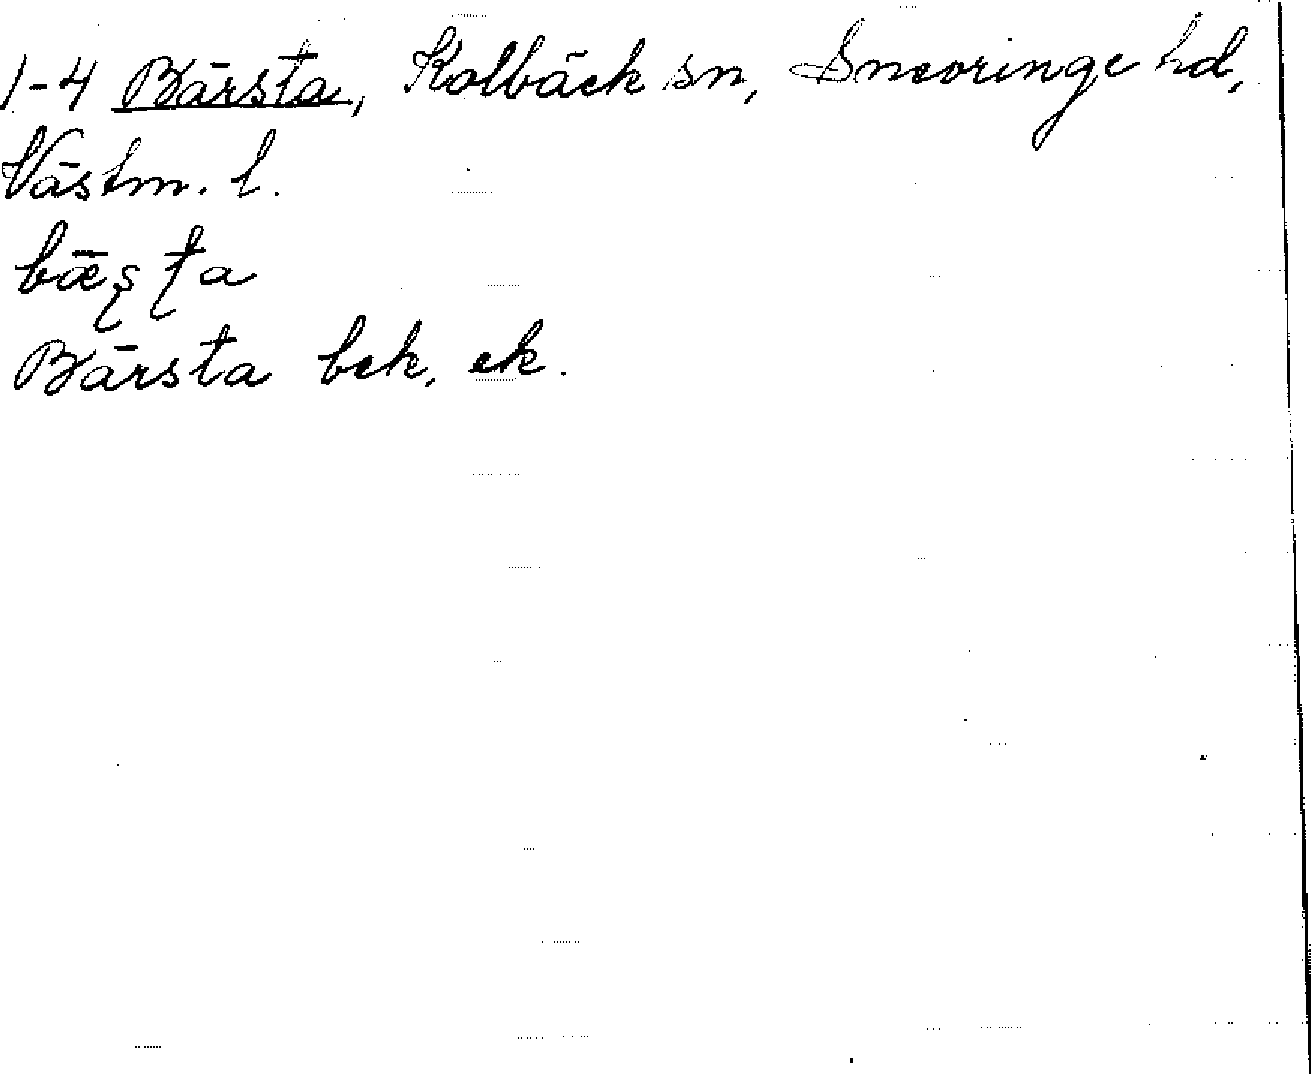 1-4 Bärsta, Kolbäck sn, Snevringe hd,
Västm. l.
bǣʂʈa
Bärsta bek, ek.